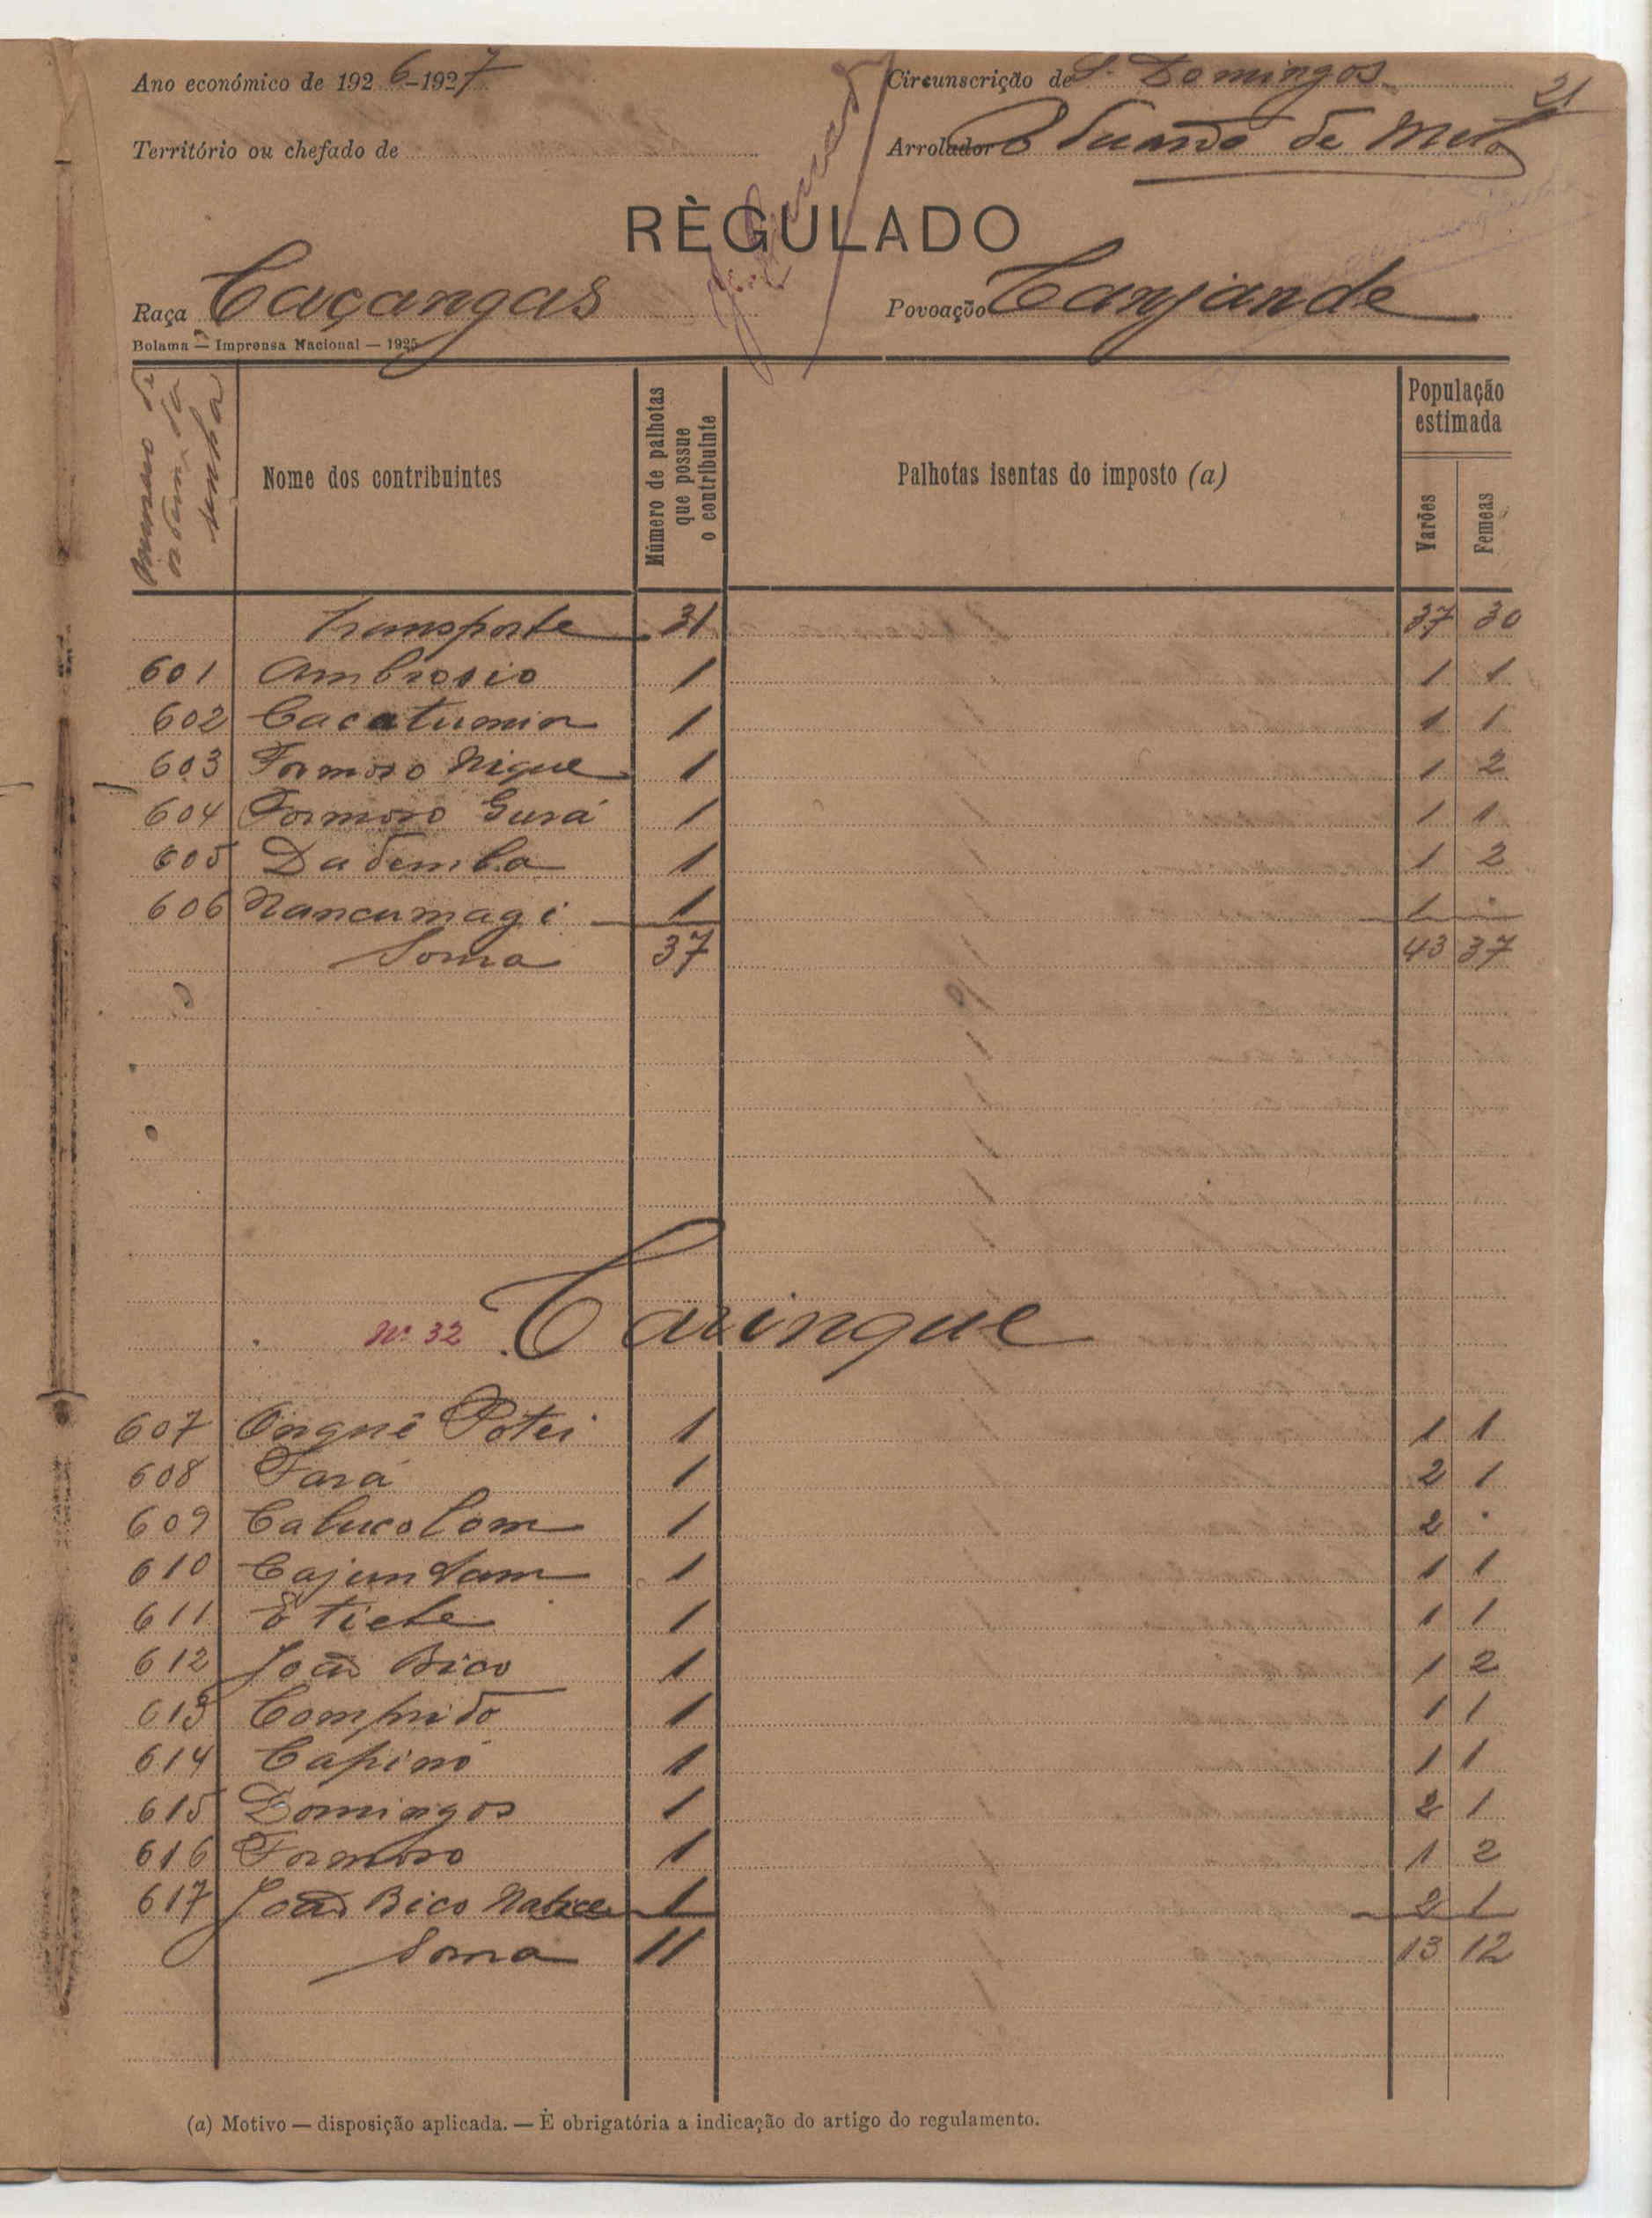 Ano económico de 1926-1927
Circunscrição de S. Domingos
21
Território ou chefado de
Arrolador Eduardo de Melo
RÈGULADO
Raça Caçangas
Povoação Canjande
Bolama — Imprensa Nacional — 1925
Nome dos contribuintes
Número de palhotas que possue o contribuinte
Palhotas isentas do imposto (a)
População estimada
Varões
Femeas
Transporte 31 37 30
601 Ambrosio 1 1 1
602 Cacatumin 1 1 1
603 Formoso Nique 1 1 2
604 Formoso Gurá 1 1 1
605 Dademba 1 1 2
606 Nancumagi 1 1 .
Soma 37 43 37
Nº 32 Caringue
607 Ongnê Potei 1 1 1
608 Fará 1 2 1
609 1 2 .
610 Cajundam 1 1 1
611 1 1 1
612 João Bico 1 1 2
613 Comprido 1 1 1
614 Capinó 1 1 1
615 Domingos 1 2 1
616 Formoso 1 1 2
617 João Bico 1 2 1
Soma 11 13 12
(a) Motivo — disposição aplicada. — È obrigatória a indicação do artigo do regulamento.